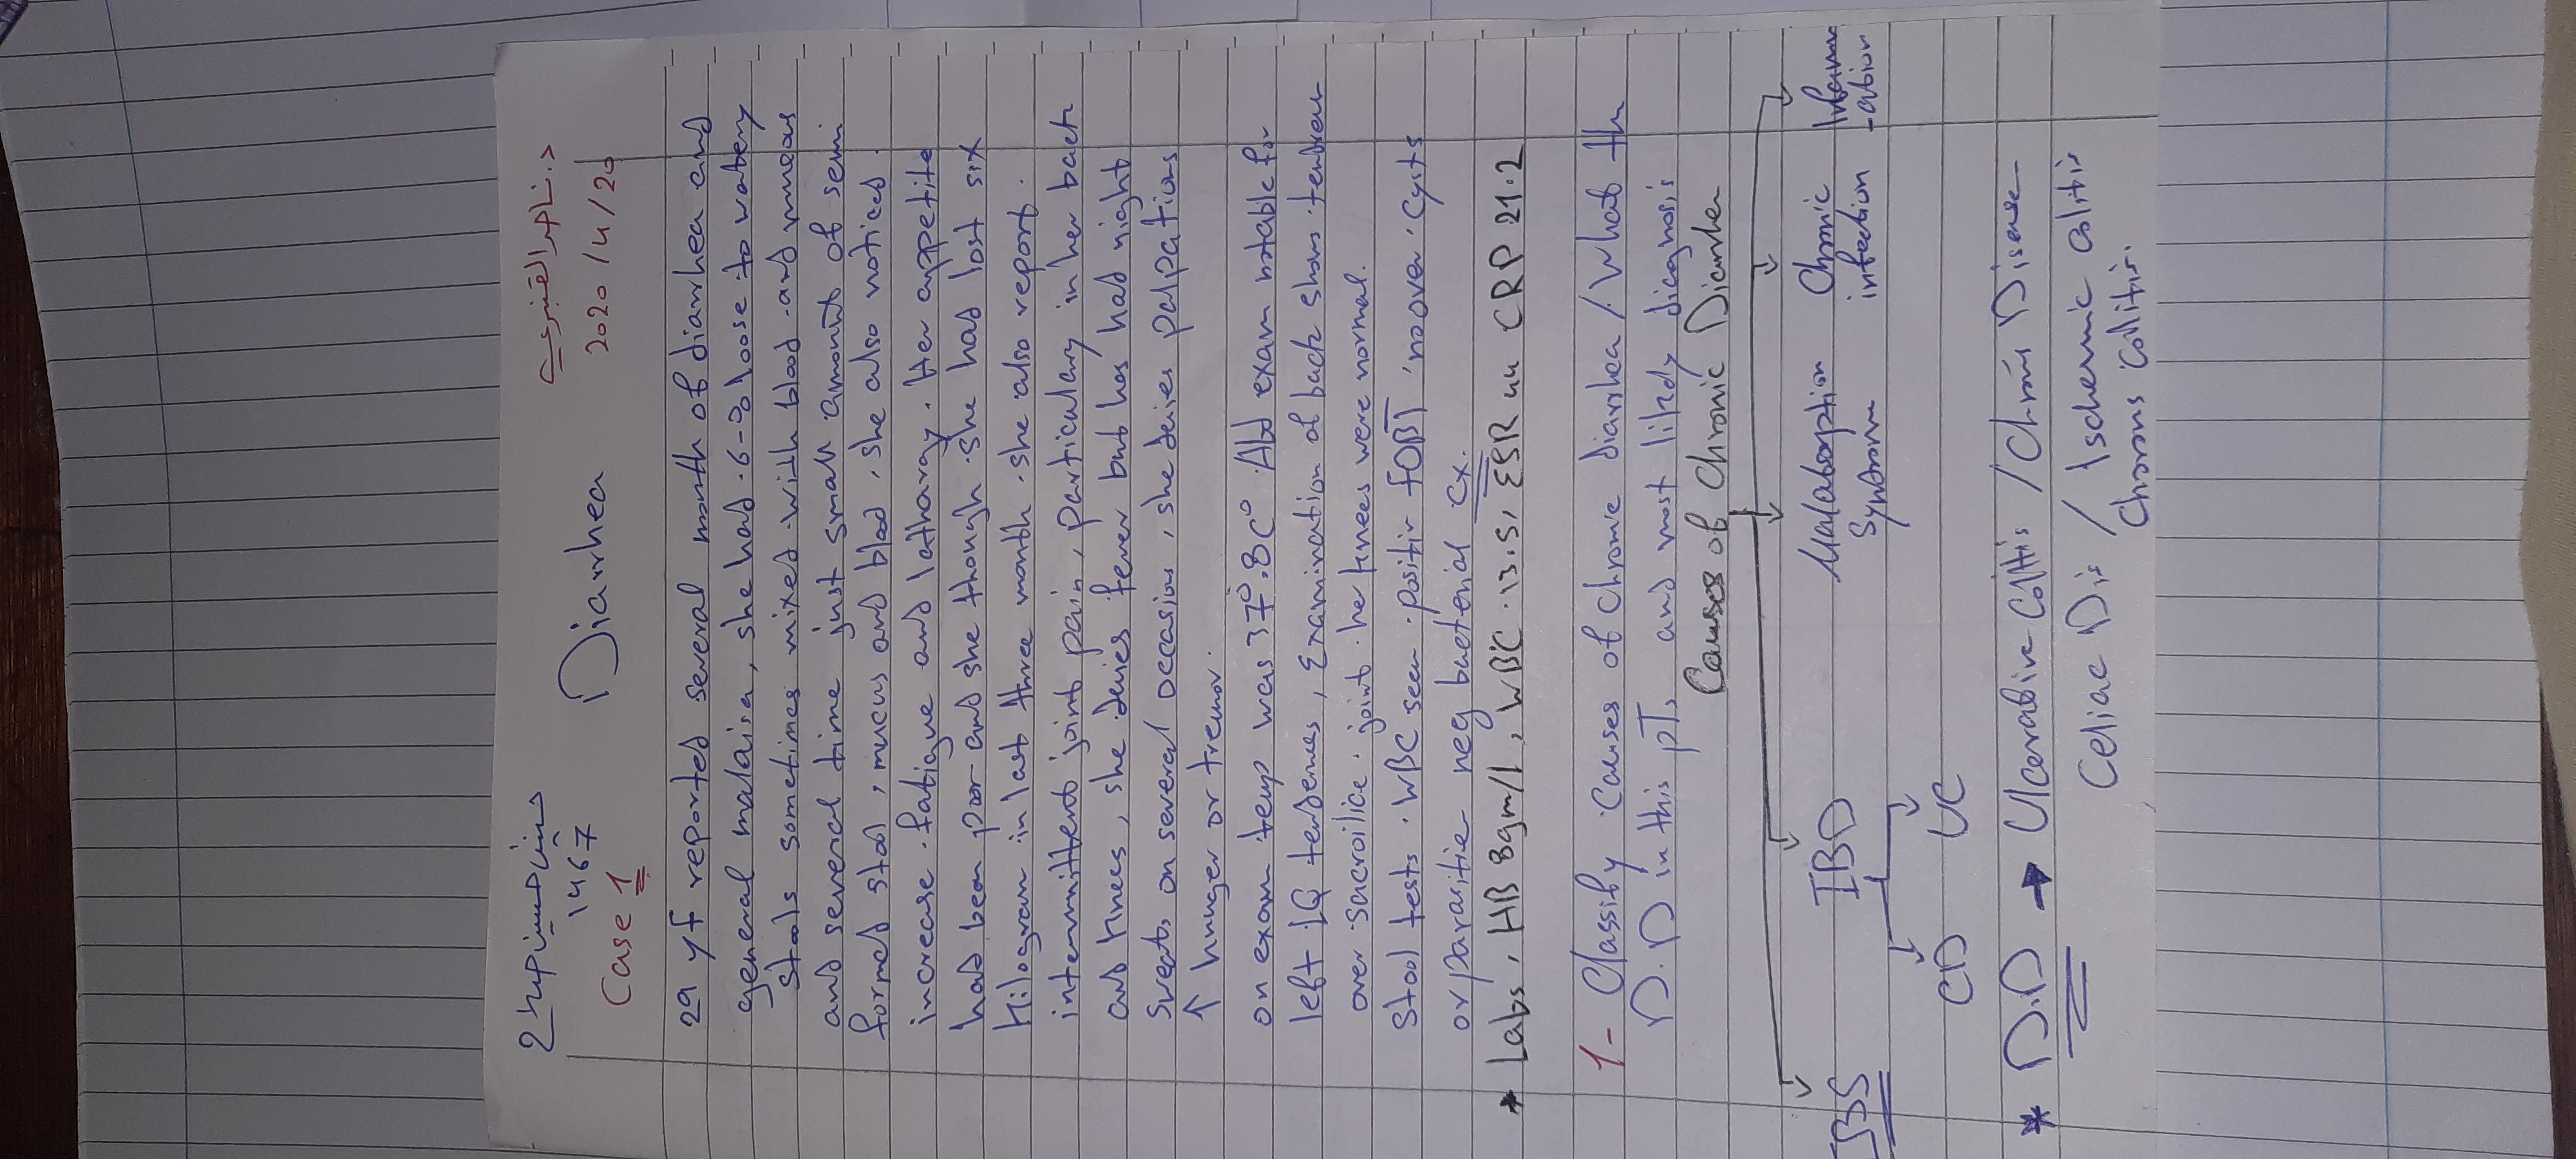 د. ناصر القبرصي
2020/4/20
1467
Diarrhea
Case 1
29 yf reported several month of diarrhea and
general malaisa, she had 6-8 loose to watery
stools sometimes mixed with blood and mucous
and several time just small amount of semi
formed stool, mucus and blood, she also noticed
increase fatigue and lathargy. Her appetite
had been poor and she though she has lost six
kilogram in last three month. she also report
intermittent joint pain, particulary in her back
and knees, she denies fever but has had night
sweats on several occasions, she denies palpations
↑ hunger or tremor.
on exam temp was 37°.8C° Abd exam notable for
left LQ tendernes, Examination of back shows tender
over sacroilice joint. her knees were normal.
Stool tests. WBC seen. positiv FOBT, no over, cysts
or parasitie neg bacterial Cx.
* Labs, HB 8gm/l, WBC 13.5, ESR 44 CRP 21.2
1- Classify causes of chronic diarrhea / what th
D.D in this pT, and most likely diagnosis
Causes of Chronic Diarrhea
IBS IBD Malabsorption Chronic Inflamm
Syndrom infection -ation
CD UC
* D.D → Ulcerative colitis / Chron's Disease
Celiac Dis / Ischemic colitis
Chrons colitis.